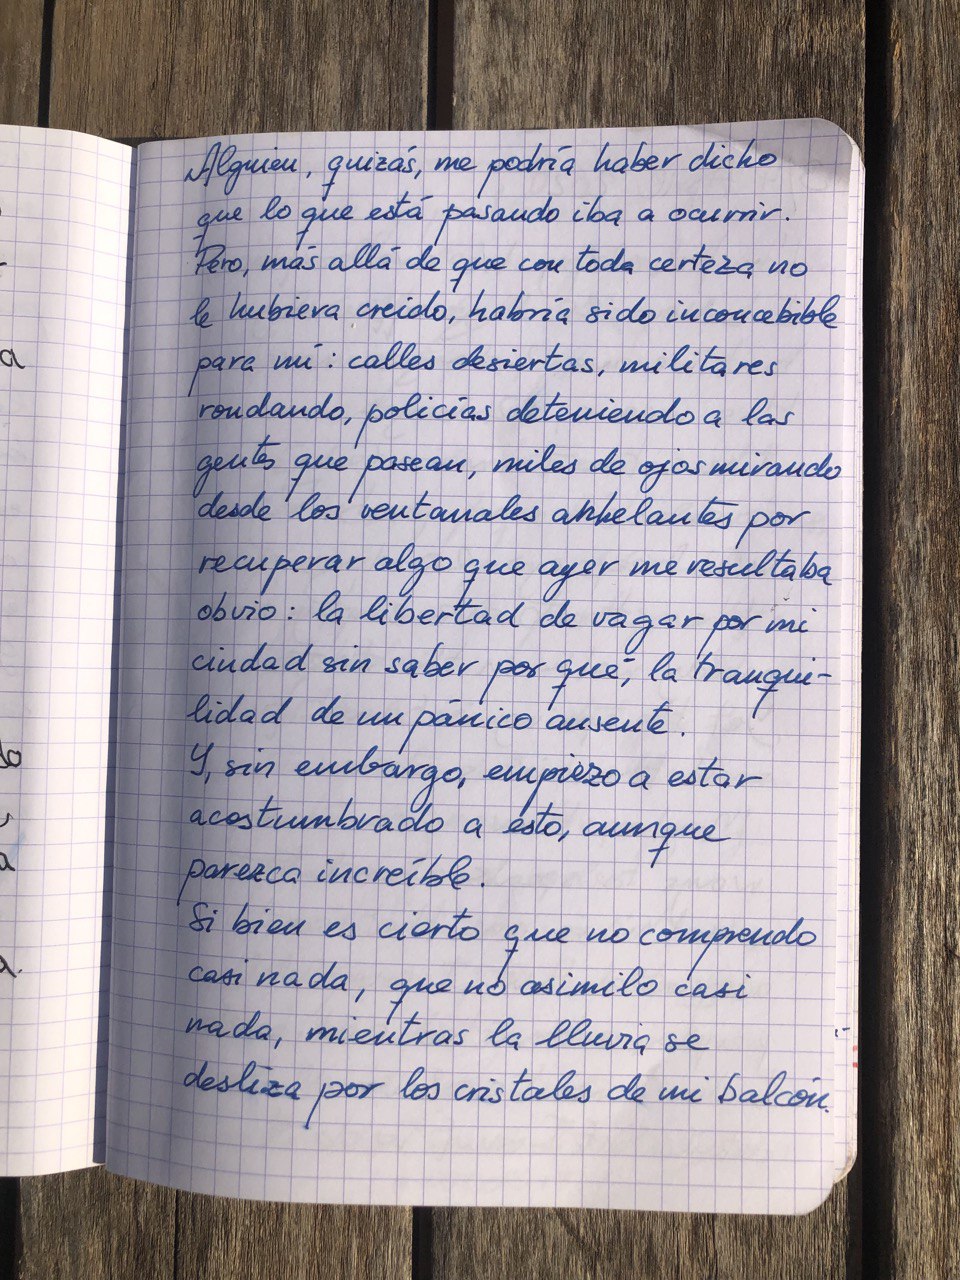 Alguien, quizás, me podría haber dicho
que lo que está pasando iba a ocurrir.
Pero, más allá de que con toda certeza no
le hubiera creido, habría sido inconcebible
para mí: calles desiertas, militares
rondando, policías deteniendo a las
gentes que pasean, miles de ojos mirando
desde los ventanales anhelantes por
recuperar algo que ayer me resultaba
obvio: la libertad de vagar por mi
ciudad sin saber por qué; la tranqui-
lidad de un pánico ausente.
Y, sin embargo, empiezo a estar
acostumbrado a esto, aunque
parezca increíble.
Si bien es cierto que no comprendo
casi nada, que no asimilo casi
nada, mientras la lluvia se
desliza por los cristales de mi balcón.